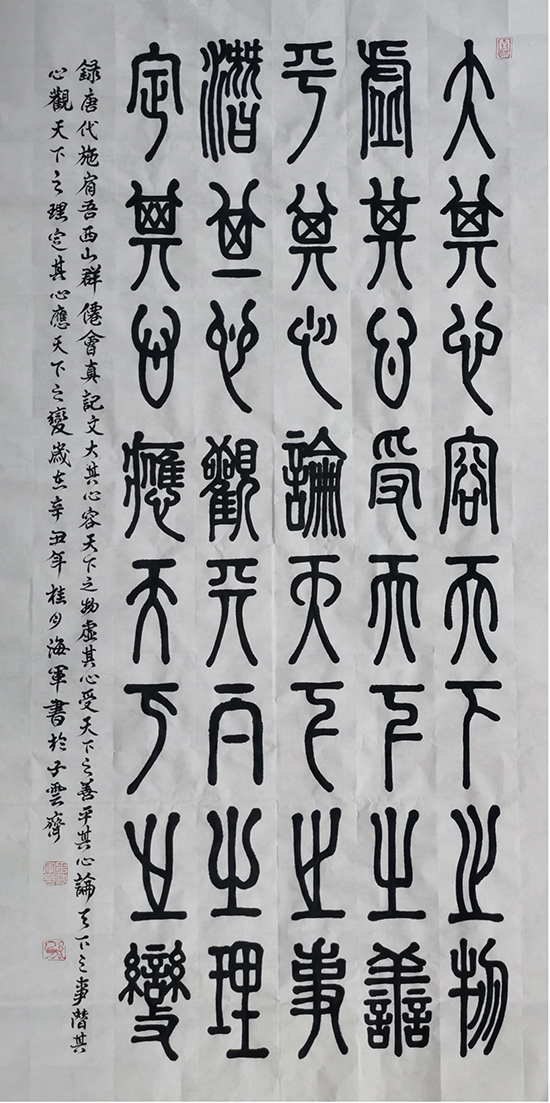 大其心容天下之物
虛其心受天下之善
平其心論天下之事
潛其心觀天下之理
定其心應天下之變
錄唐代施肩吾西山群僊會真記文大其心容天下之物虛其心受天下之善平其心論天下之事潛其
心觀天下之理定其心應天下之變歲在辛丑年桂月海軍書於子雲齋